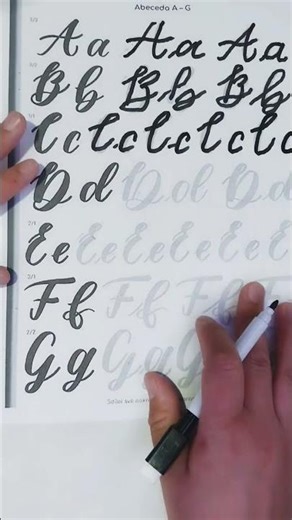 Abeceda A - G
A a A a A a
B b B b B b
C c C c C c C c
D d D d D d
E e E e E e E e E
F f F f F f F
G g G g G